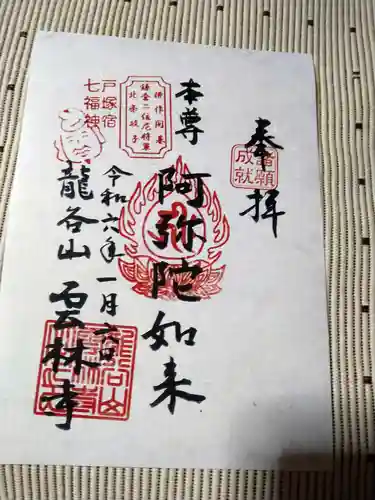 奉拝
諸願
成就
本尊
阿弥陀如来
併作開基
鎌倉二位尼将軍
北条政子
令和六年一月六日
戸塚宿
七福神
龍谷山
雲林寺